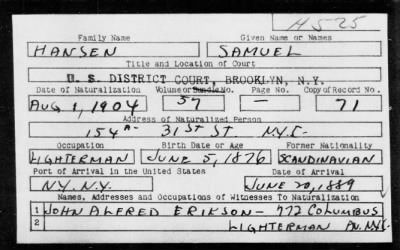 H525
Family Name Given Name or Names
HANSEN SAMUEL
Title and Location of Court
U. S. DISTRICT COURT, BROOKLYN, N.Y.
Date of Naturalization Volume or Bundle No. Page No. Copy of Record No.
AUG 1, 1904 57 — 71
Address of Naturalized Person
154A- 31ST ST. N.Y.C-
Occupation Birth Date or Age Former Nationality
LIGHTERMAN JUNE 5, 1876 SCANDINAVIAN
Port of Arrival in the United States Date of Arrival
N.Y. N.Y. JUNE 20, 1889
Names, Addresses and Occupations of Witnesses To Naturalization
1 JOHN ALFRED ERIKSON — 772 COLUMBUS
2 LIGHTERMAN AV. N.Y.C.